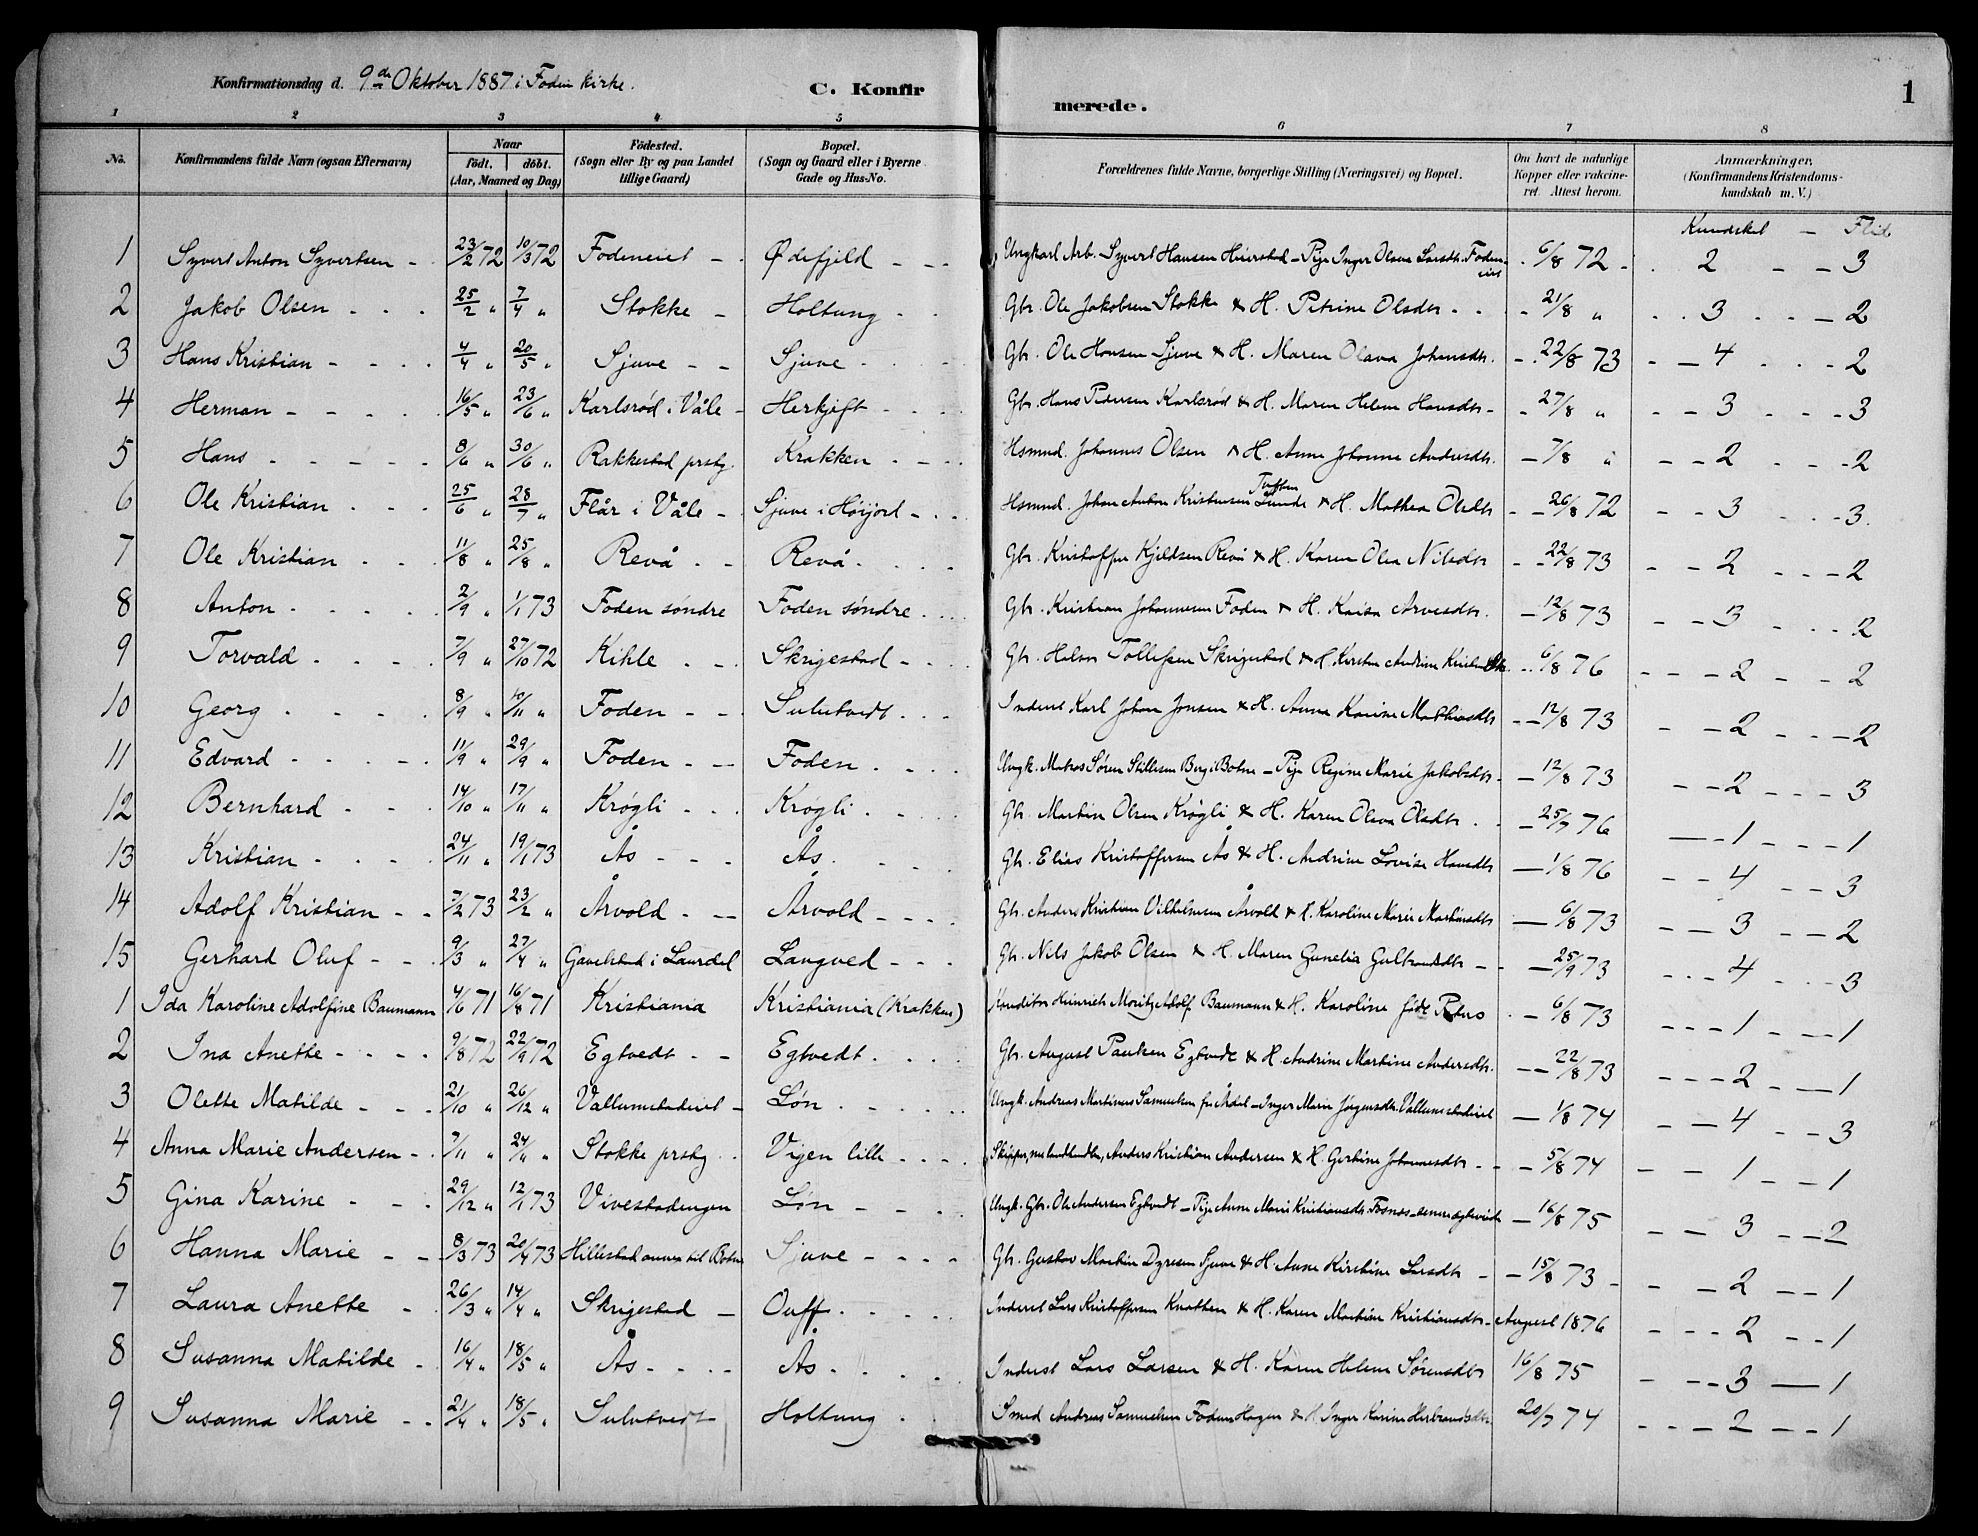 Konfirmationsdag d. 9de Oktober 1887 i Foden kirke.
C. Konfirmerede.
1
1 2 3 4 5 6 7 8
No. Konfirmandens fulde Navn (ogsaa Efternavn) Naar födt. döbt. (Aar, Maaned og Dag) Födested. (Sogn eller By og paa Landet tillige Gaard) Bopæl. (Sogn og Gaard eller i Byerne Gade og Hus-No. Forældrenes fulde Navne, borgerlige Stilling (Næringsvei) og Bopæl. Om havt de naturlige Kopper eller vakcineret. Attest herom. Anmærkninger. (Konfirmandens Kristendomskundskab m. V.)
Kundskab - Flid
1 Syvert Anton Syvertsen - 23/2 72 10/3 72 Fodeneiet - Ødefjeld - - - Ungkarl Arb. Syvert Hansen - Pige Inger Olava Larsdtr. Fodeneiet 6/8 72 - 2 - - 3
2 Jakob Olsen . . . 25/2 " 7/4 " Stokke - Holtung . . Gbr. Ole Jakobsen Stokke & H. Petrine Olsdtr - - - 21/8 " . . 3 . . - 2
3 Hans Kristian - - . . 4/4 " 20/5 " Sjuve - - Sjuve . . - Gbr. Ole Hansen Sjuve & H. Maren Olava Johansdtr. - . 22/8 73 - - 4 . . . 2
4 Herman - - - - . 16/5 " 23/6 " Karlsrød i Våle - Herkjift - - . . Gbr. Hans Pedersen Karlsrød & H. Maren Helene Hansdtr - - 27/8 " - - 3 - - - 3
5 Hans - - - - - 8/6 " 30/6 " Rakkestad prstg. Krakken . - - . Hsmnd. Johannes Olsen & H. Anne Johanne Andersdtr. - 7/8 " - - 2 - - - 2
6 Ole Kristian . . . 25/6 " 28/7 " Flår i Våle - Sjuve i Høijord - . . Hsmnd. Johan Anton Kristensen Lunde & H. Mathea Olsdtr - - 26/8 72 - - 3 . . - 3.
7 Ole Kristian . . . 11/8 " 25/8 " Revå . - Revå . . . . Gbr. Kristoffer Kjeldsen Revå & H. Karen Olea Nilsdtr - - 22/8 73 - - 2 - - - 2
8 Anton . . . . . 2/9 " 1/1 73 Foden søndre Foden søndre . . . Gbr. Kristian Johannesen Foden & H. Kaisa Arvesdtr. - 12/8 73 - - 3 . . . 2
9 Torvald . . . . 7/9 " 27/10 72 Kihle . - . Skrigestad - . . Gbr. Tollefsen Skrigestad & H. Kirsten Andrine . . 6/8 76 - - - 2 - - 2
10 Georg . . . . 8/9 " 10/11 " Foden - - . Sulutvedt . . . Inderst Karl Johan Jensen & H. Anna Karine Mathiasdtr - - 12/8 73 - - 2 - - - 2
11 Edvard . . . . 11/9 " 29/9 " Foden . - - Foden . . . . Ungk. Matros Søren - Pige Regine Marie Jakobsdtr - - 12/8 73 - - 2 - - - 3
12 Bernhard . . . 14/10 " 17/11 " Krøgli . . . Krøgli . . . . Gbr. Martin Olsen Krøgli & H. Karen Olava Olsdtr . . - 25/7 76 - - 1 - - - 1
13 Kristian . . . . 24/11 " 19/1 73 Ås - - - Ås . . . . Gbr. Elias Kristoffersen Ås & H. Andrine Lovise Hansdtr - 1/8 76 - - 4 - - 3
14 Adolf Kristian - - 7/2 73 23/2 " Årvold . - - Årvold - - - . Gbr. Anders Kristian Vilhelmsen Årvold & H. Karoline Marie Martinsdtr - 6/8 73 - - 3 - - 2
15 Gerhard Oluf - - . 9/3 " 27/4 " i Laurdal Langved - - - Gbr. Nils Jakob Olsen & H. Maren Gunelia Gulbrandsdtr - - 25/9 73 - . . 4 - . . 3
1 Ida Karoline Adolfine Baumann 4/6 71 16/8 71 Kristiania Kristiania (Krakken) Konditor Heinrich Moritz Adolf Baumann & H. Karoline født . - 6/8 73 - - - 1 - - 1
2 Ina Anette - - - . 9/8 72 22/9 72 Egtvedt . - Egtvedt . . . . Gbr. August Paulsen Egtvedt & H. Andrine Martine Andersdtr. - - 22/8 73 - - - 2 - - 1
3 Olette Matilde - - . 21/10 " 26/12 " Vallumstadeiet - Løn . . . . Ungk. Andreas Martinus Samuelsen - Inger Marie Jørgensdtr. Vallumstadeiet - 1/8 74 - - 4 - - 3
4 Anna Marie Andersen - . 7/11 " 24/11 " Stokke prstg . . Vigen lille - - - . Skipper, Anders Kristian Andersen & H. Gertine Johannesdtr - - - 5/8 74 - - 1 - - 1
5 Gina Karine - - . 29/12 " 12/1 73 Vivestadengen Løn - - . . Ungk. Gbr. Ole Andersen Egtvedt - Pige Anne Marie Kristiansdtr. Fosnes - - 16/8 75 - - 3 - - 2
6 Hanna Marie - - 8/3 73 20/4 73 Hillestad annex til Botne Sjuve - - - - Gbr. Gustav Martin Dyresen Sjuve & H. Anne Kirstine Larsdtr - - 15/8 73 - - - 2 - - 1
7 Laura Anette . . 26/3 " 14/4 " Skrigestad - Ouff . . . . . Inderst Lars Kristoffersen Knatten & H. Karen Martine Kristiansdtr - August 1876 - - - 2 - - 1
8 Susanna Matilde . 16/4 " 18/5 " Ås - - . . Ås . . . . Inderst Lars Larsen & H. Karen Helene Sørensdtr 16/8 75 - - - 3 - 1
9 Susanna Marie - - 21/4 " 18/5 " Sulutvedt Holtung . . Smed Andreas Samuelsen Foden Hagen & H. Inger Karine Herbrandsdtr. 20/7 74 - - - 2 - - 1